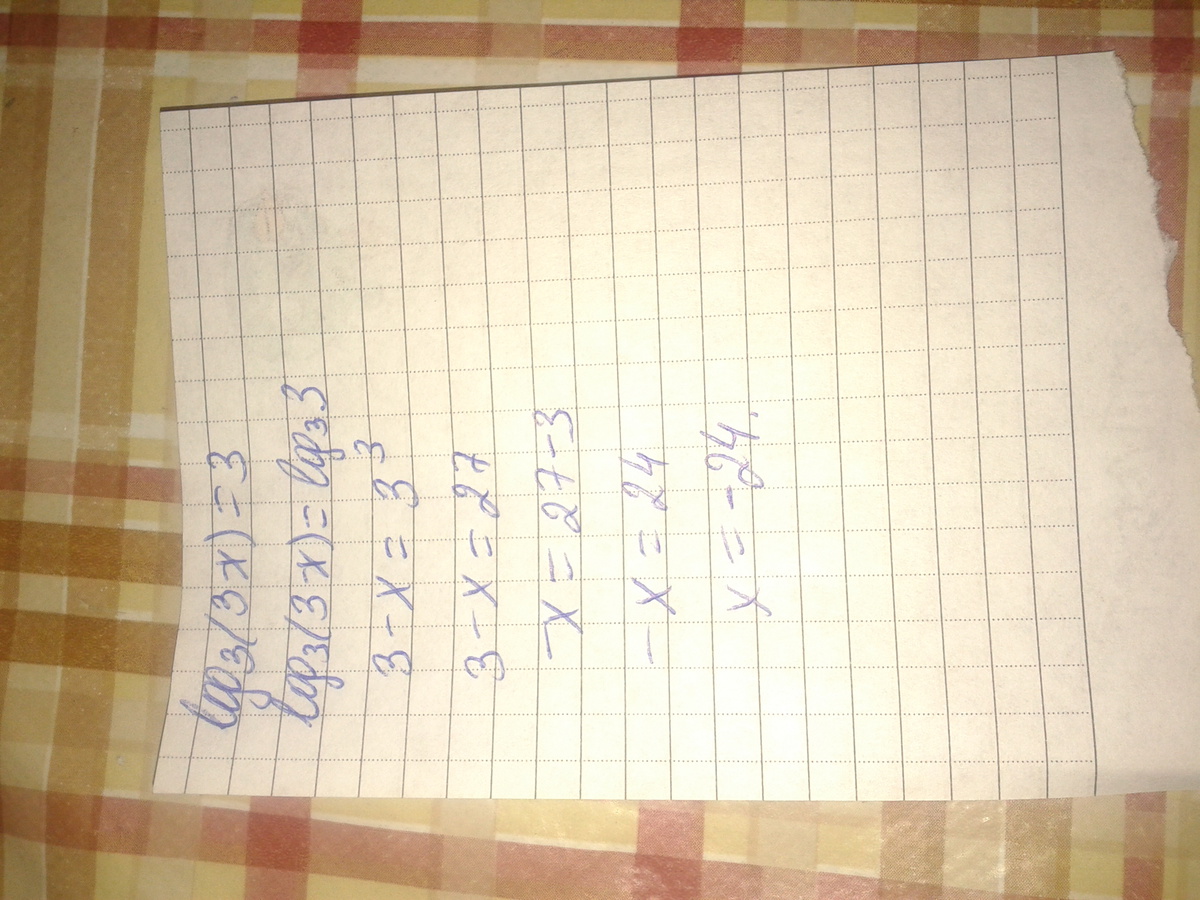 log₃(3x)=3
log₃(3x)=log₃3
3-x=3³
3-x=27
-x=27-3
-x=24
x=-24.